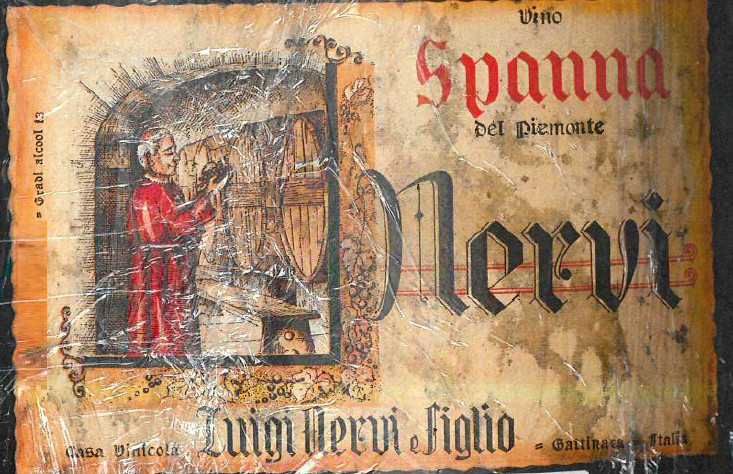 Vino
Spanna
del Piemonte
= Gradi alcool 13
Nervi
Luigi Nervi e Figlio
Casa Vinicola = Gattinara = Italia